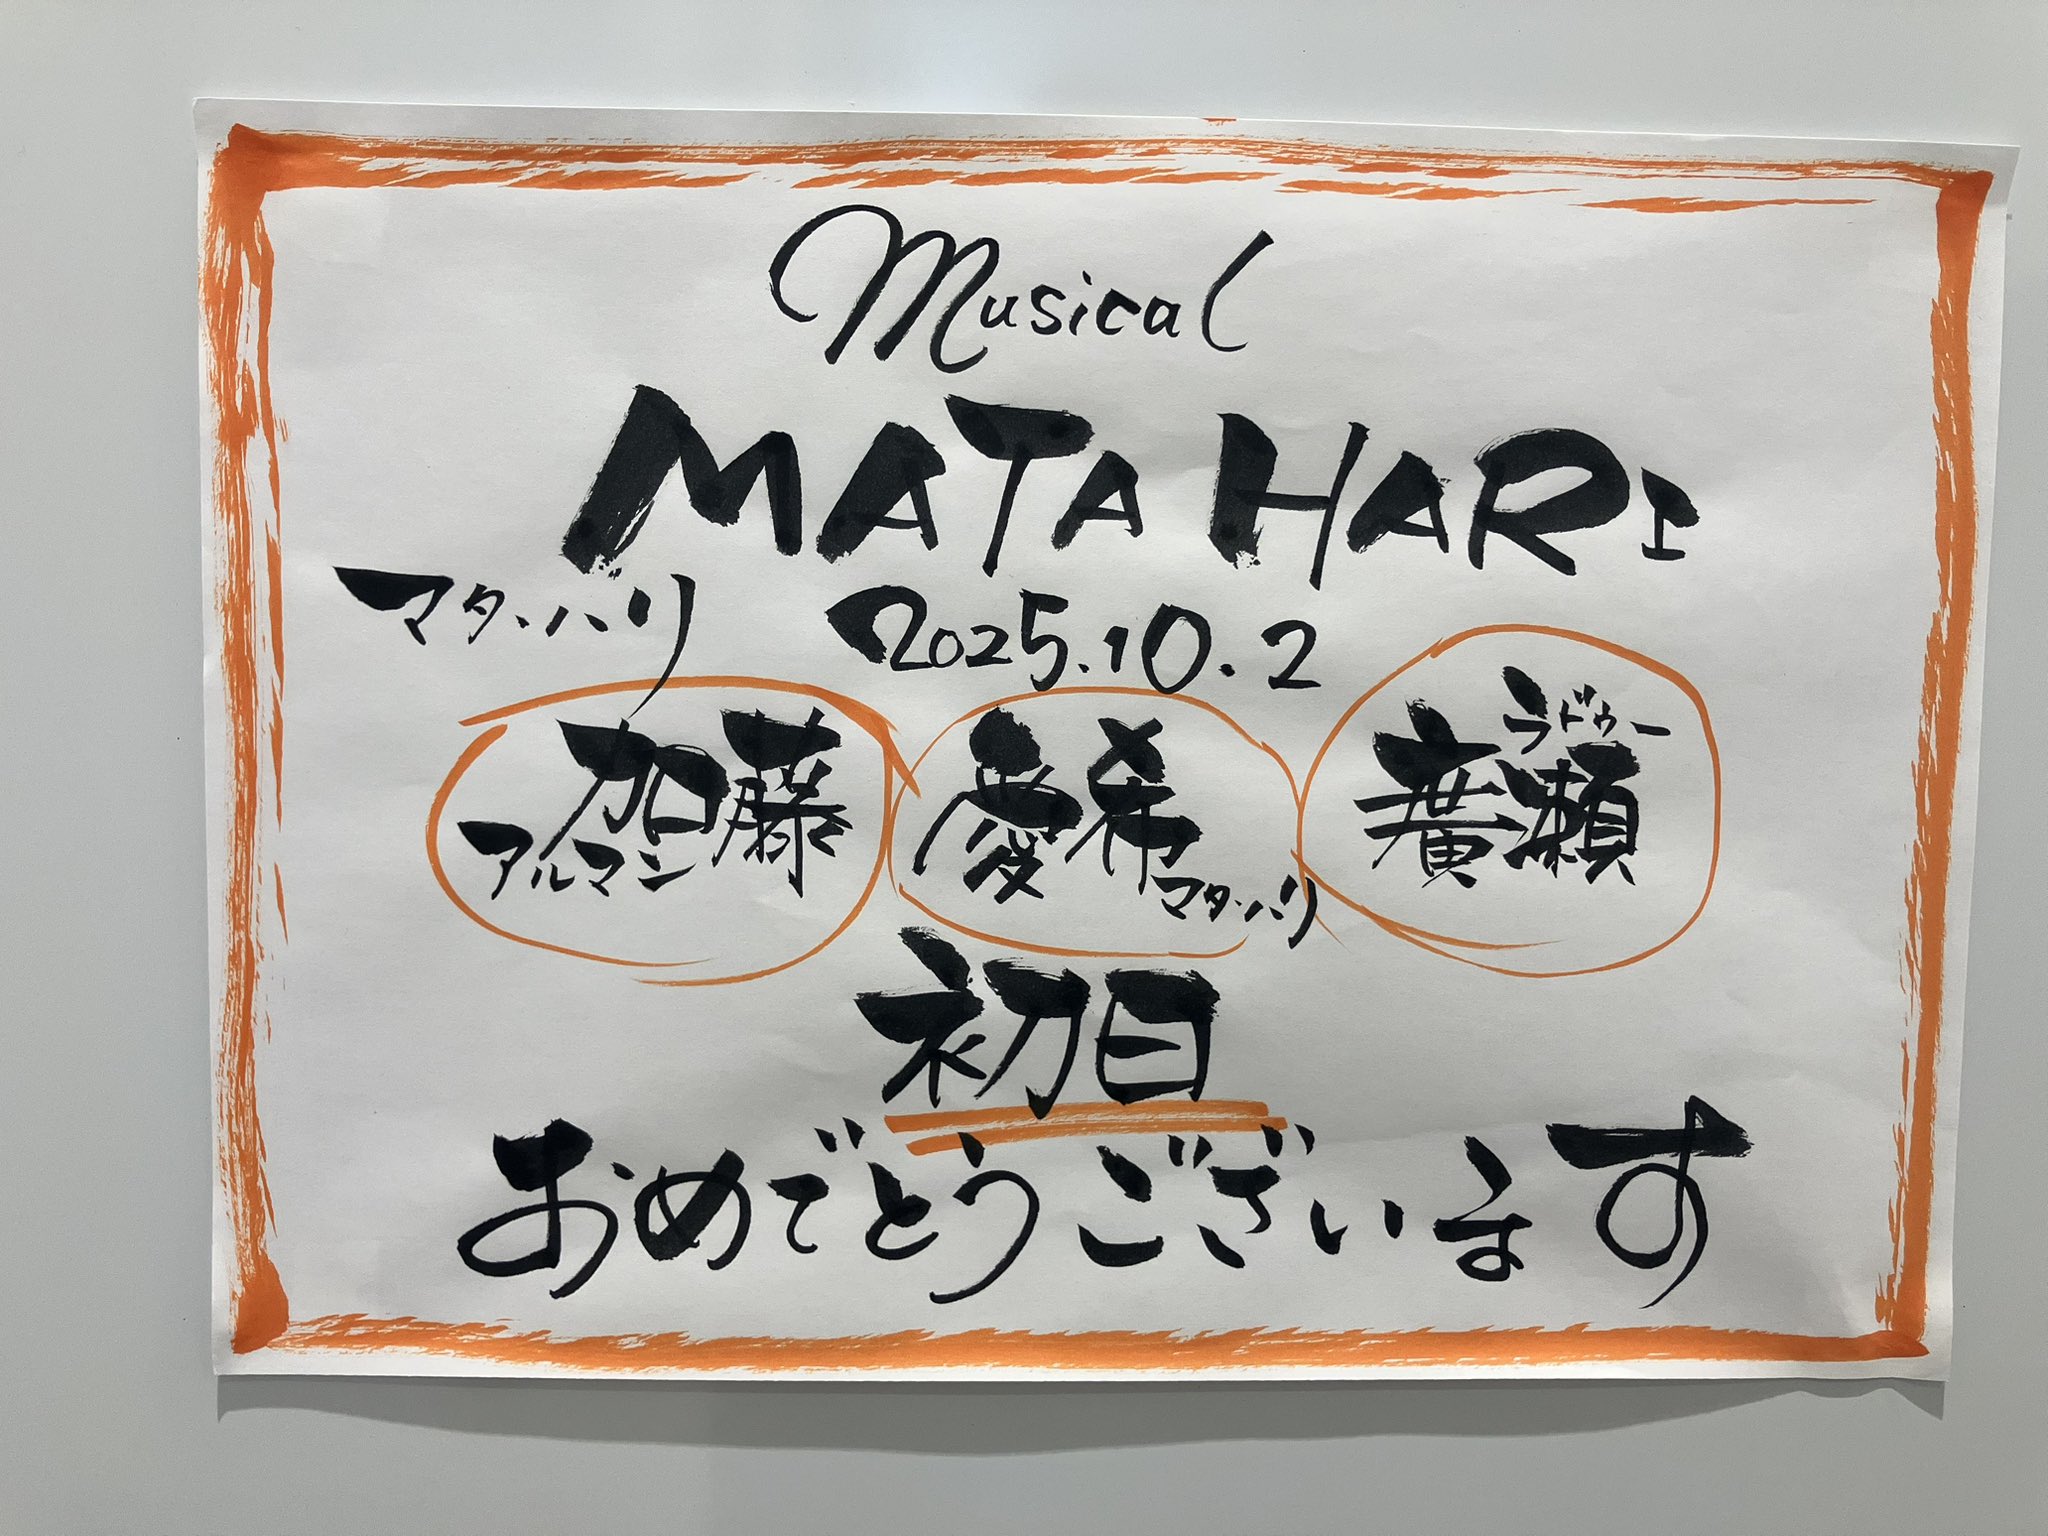 Musical
MATA HARI
マタ・ハリ
2025.10.2
加藤
アルマン
愛希
マタ・ハリ
ラドゥー
廣瀬
初日
おめでとうございます